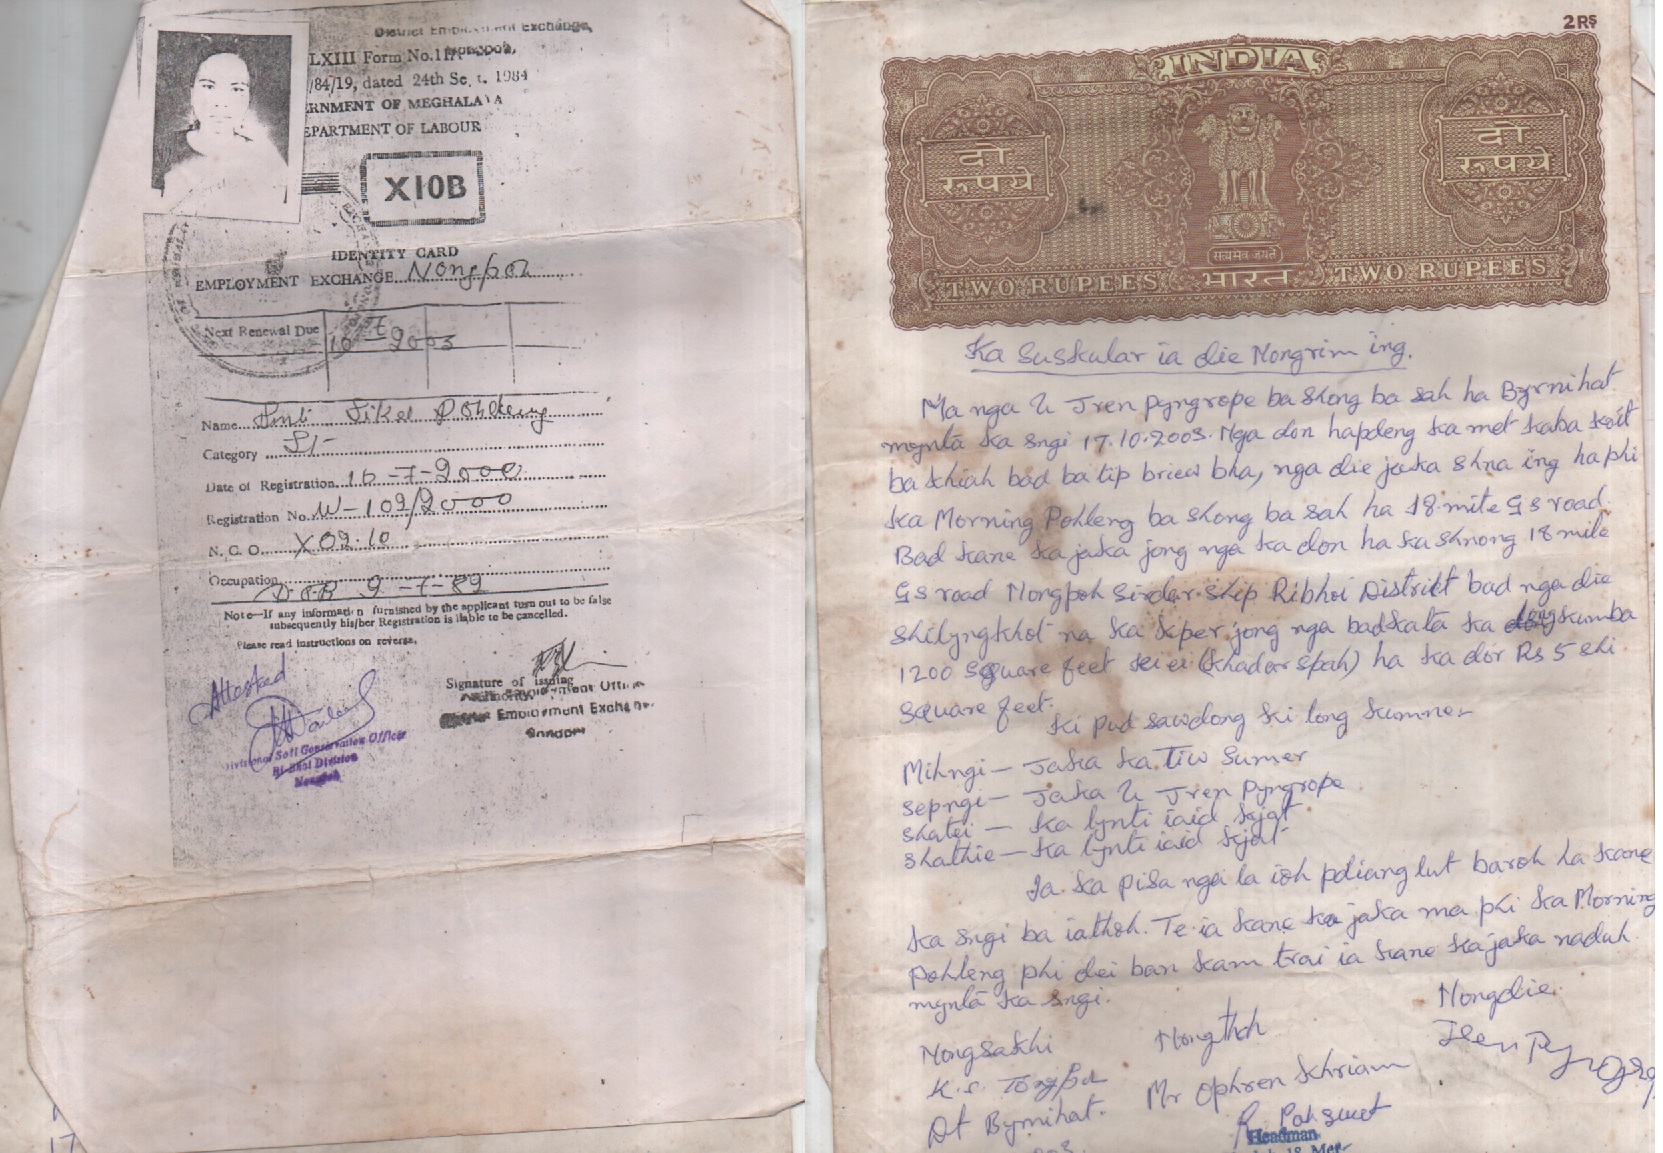 District Employment Exchange,
Nongpoh,
LXIII Form No.11
/84/19, dated 24th Sept. 1984
ERNMENT OF MEGHALAYA
EPARTMENT OF LABOUR
X10B
IDENTITY CARD
EMPLOYMENT EXCHANGE Nongpoh
Next Renewal Due
10 2003
Name Smti Sikel Pohleng
Category ST
Date of Registration 10-7-2000
Registration No. W-109/2000
N. C. O. X02.10
Occupation
D.O.B 9-7-82
Note—If any information furnished by the applicant turn out to be false
subsequently his/her Registration is liable to be cancelled.
Please read instructions on reverse.
Attested
Signature of issuing
Authority
Employment Officer
Employment Exchange
Divisional Soil Conservation Officer
Ri-Bhoi Division
Nongpoh
17
2 RS
INDIA
दो
रूपये
दो
रूपये
सत्यमेव जयते
TWO RUPEES भारत TWO RUPEES
Ka Suskular ia die Nongrim ing.
Ma nga U Jren Pyngrope ba shong ba sah ha Byrnihat
mynta ka sngi 17.10.2003. Nga don hapdeng ka met kaba koit
ba khiah bad ba tip briew bha, nga die jaka shna ing ha phi
ka Morning Pohleng ba shong ba sah ha 18 mile GS road.
Bad kane ka jaka jong nga ka don ha ka shnong 18 mile
GS road Nongpoh Sirdar ship Ribhoi District bad nga die
shilyngkhot na ka kper jong nga bad kata ka long kumba
1200 square feet (Khadar spah) ha ka dor Rs 5 shi
square feet.
Ki pud sawdong ki long kumne-
Mihngi — Jaka ka Tiw Sumer
Sepngi — Jaka U Jren Pyngrope
Shatei — Ka lynti iaid kjat
Shathie — Ka lynti iaid kjat
Ia ka pisa nga la ioh pdiang lut baroh ha kane
ka sngi ba iathoh. Te ia kane ka jaka ma phi ka Morning
Pohleng phi dei ban kam trai ia kane ka jaka naduh
mynta ka sngi.
Nongsakhi Nongthoh Nongdie
K.S. Tongper Mr Ophren Khriam Jren Pyngrope
Dt Byrnihat.
R. Pohsuet
Headman
18 Mer